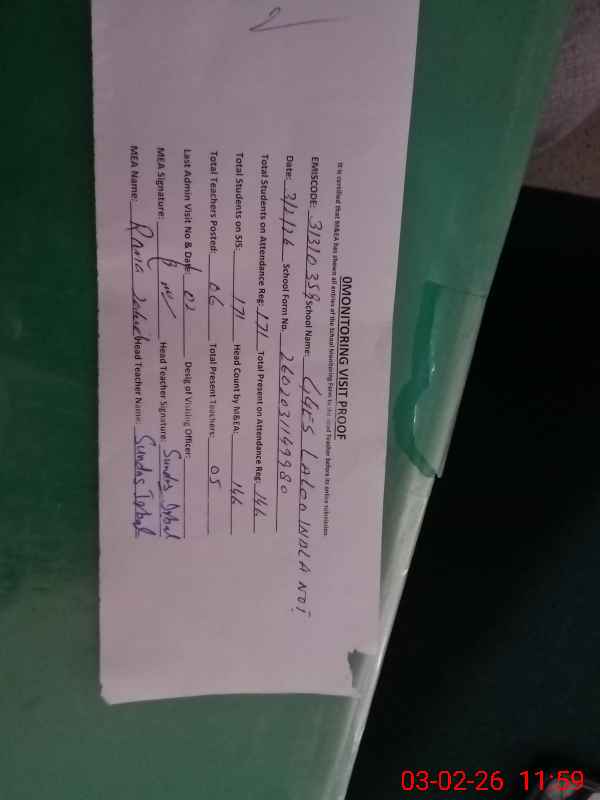 0MONITORING VISIT PROOF
It is certified that M&EA has shown all entries of the School Monitoring Form to the Head Teacher before its online submission.
EMISCODE: 31310359 School Name: GGES LALOO INDLA NOT
Date: 3/2/26 School Form No. 2602031149980
Total Students on Attendance Reg: 171 Total Present on Attendance Reg: 146
Total Students on SIS: 171 Head Count by M&EA: 146
Total Teachers Posted: 06 Total Present Teachers: 05
Last Admin Visit No & Date: 02 Desig of Visiting Officer:
MEA Signature: Head Teacher Signature: Sundas Iqbal
MEA Name: Rana Head Teacher Name: Sundas Iqbal
03-02-26 11:59